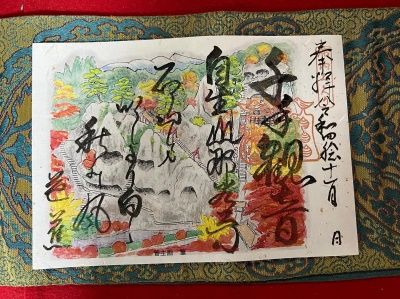 奉拝 令和四年十一月 日
千手観音
自生山那谷寺
石山の
石より白
秋の風
芭蕉